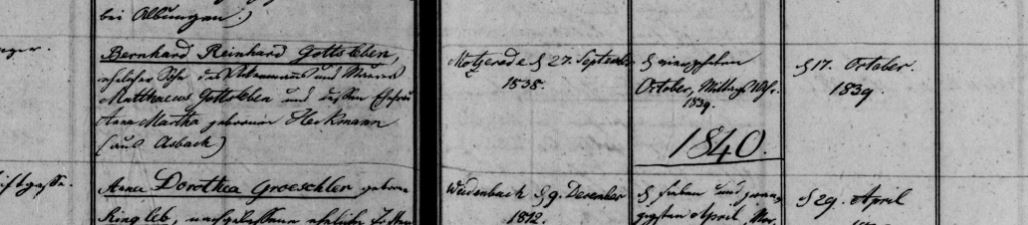 bei Albungen.)
Bernhard Reinhard Gottsleben,
ehelicher Sohn des Ackermanns und Maurers
Matthaeus Gottsleben und dessen Ehefrau
Anna Martha geborene Heckmann
(aus Asbach)
Motzerode d 27. September
1838.
d
October, Mittags Uhr.
1839.
d 17. October.
1839.
1840.
Anna Dorothea Groeschler geborne
Ringleb, nachgelassene eheliche
Weidenbach d 9. December
1812.
d sieben und zwan-
zigsten April,
d 29. April